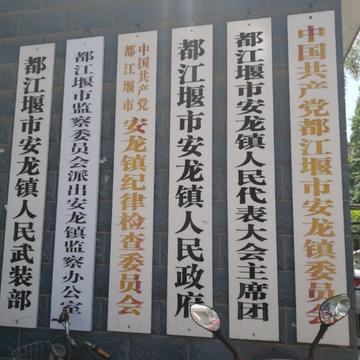 都江堰市安龙镇人民武装部
都江堰市监察委员会派出安龙镇监察办公室
中国共产党
都江堰市
安龙镇纪律检查委员会
都江堰市安龙镇人民政府
都江堰市安龙镇人民代表大会主席团
中国共产党都江堰市安龙镇委员会